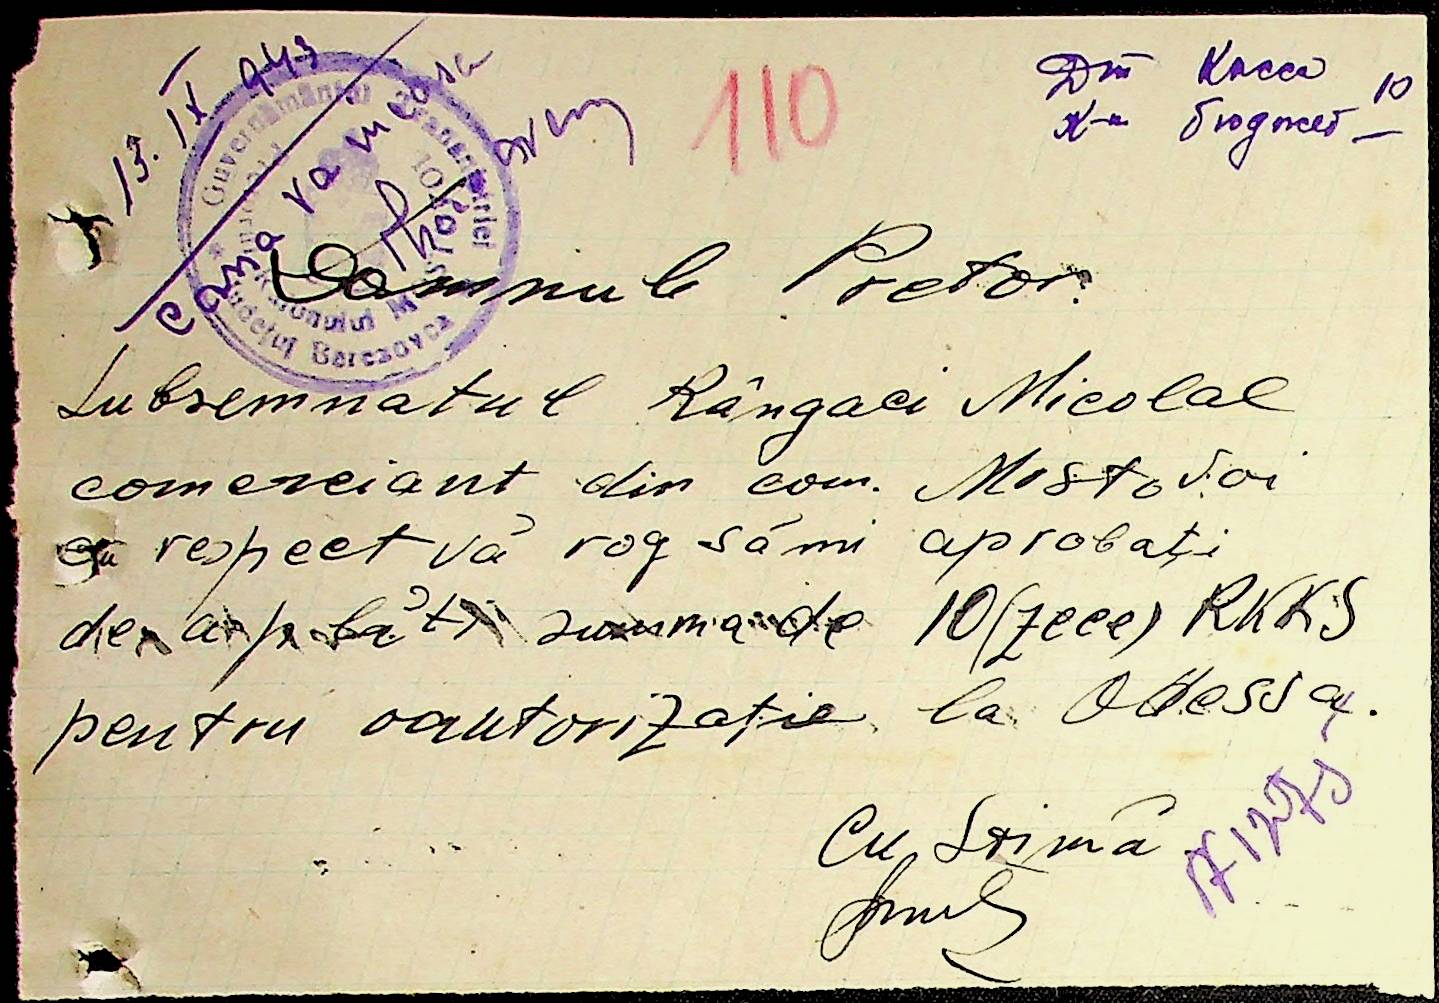 13. IX 943
110
Дт Касса
К-т бюджет 10
Guvernământul Transnistriei
Județul Berezovca
Domnule Pretor.
Subsemnatul Rângaci Nicolae
comerciant din com. Mostovoi
cu respect vă rog sămi aprobați
de a plăti summa de 10 (zece) RKKS
pentru oautorizație la Odessa.
Cu Stimă
N 1275